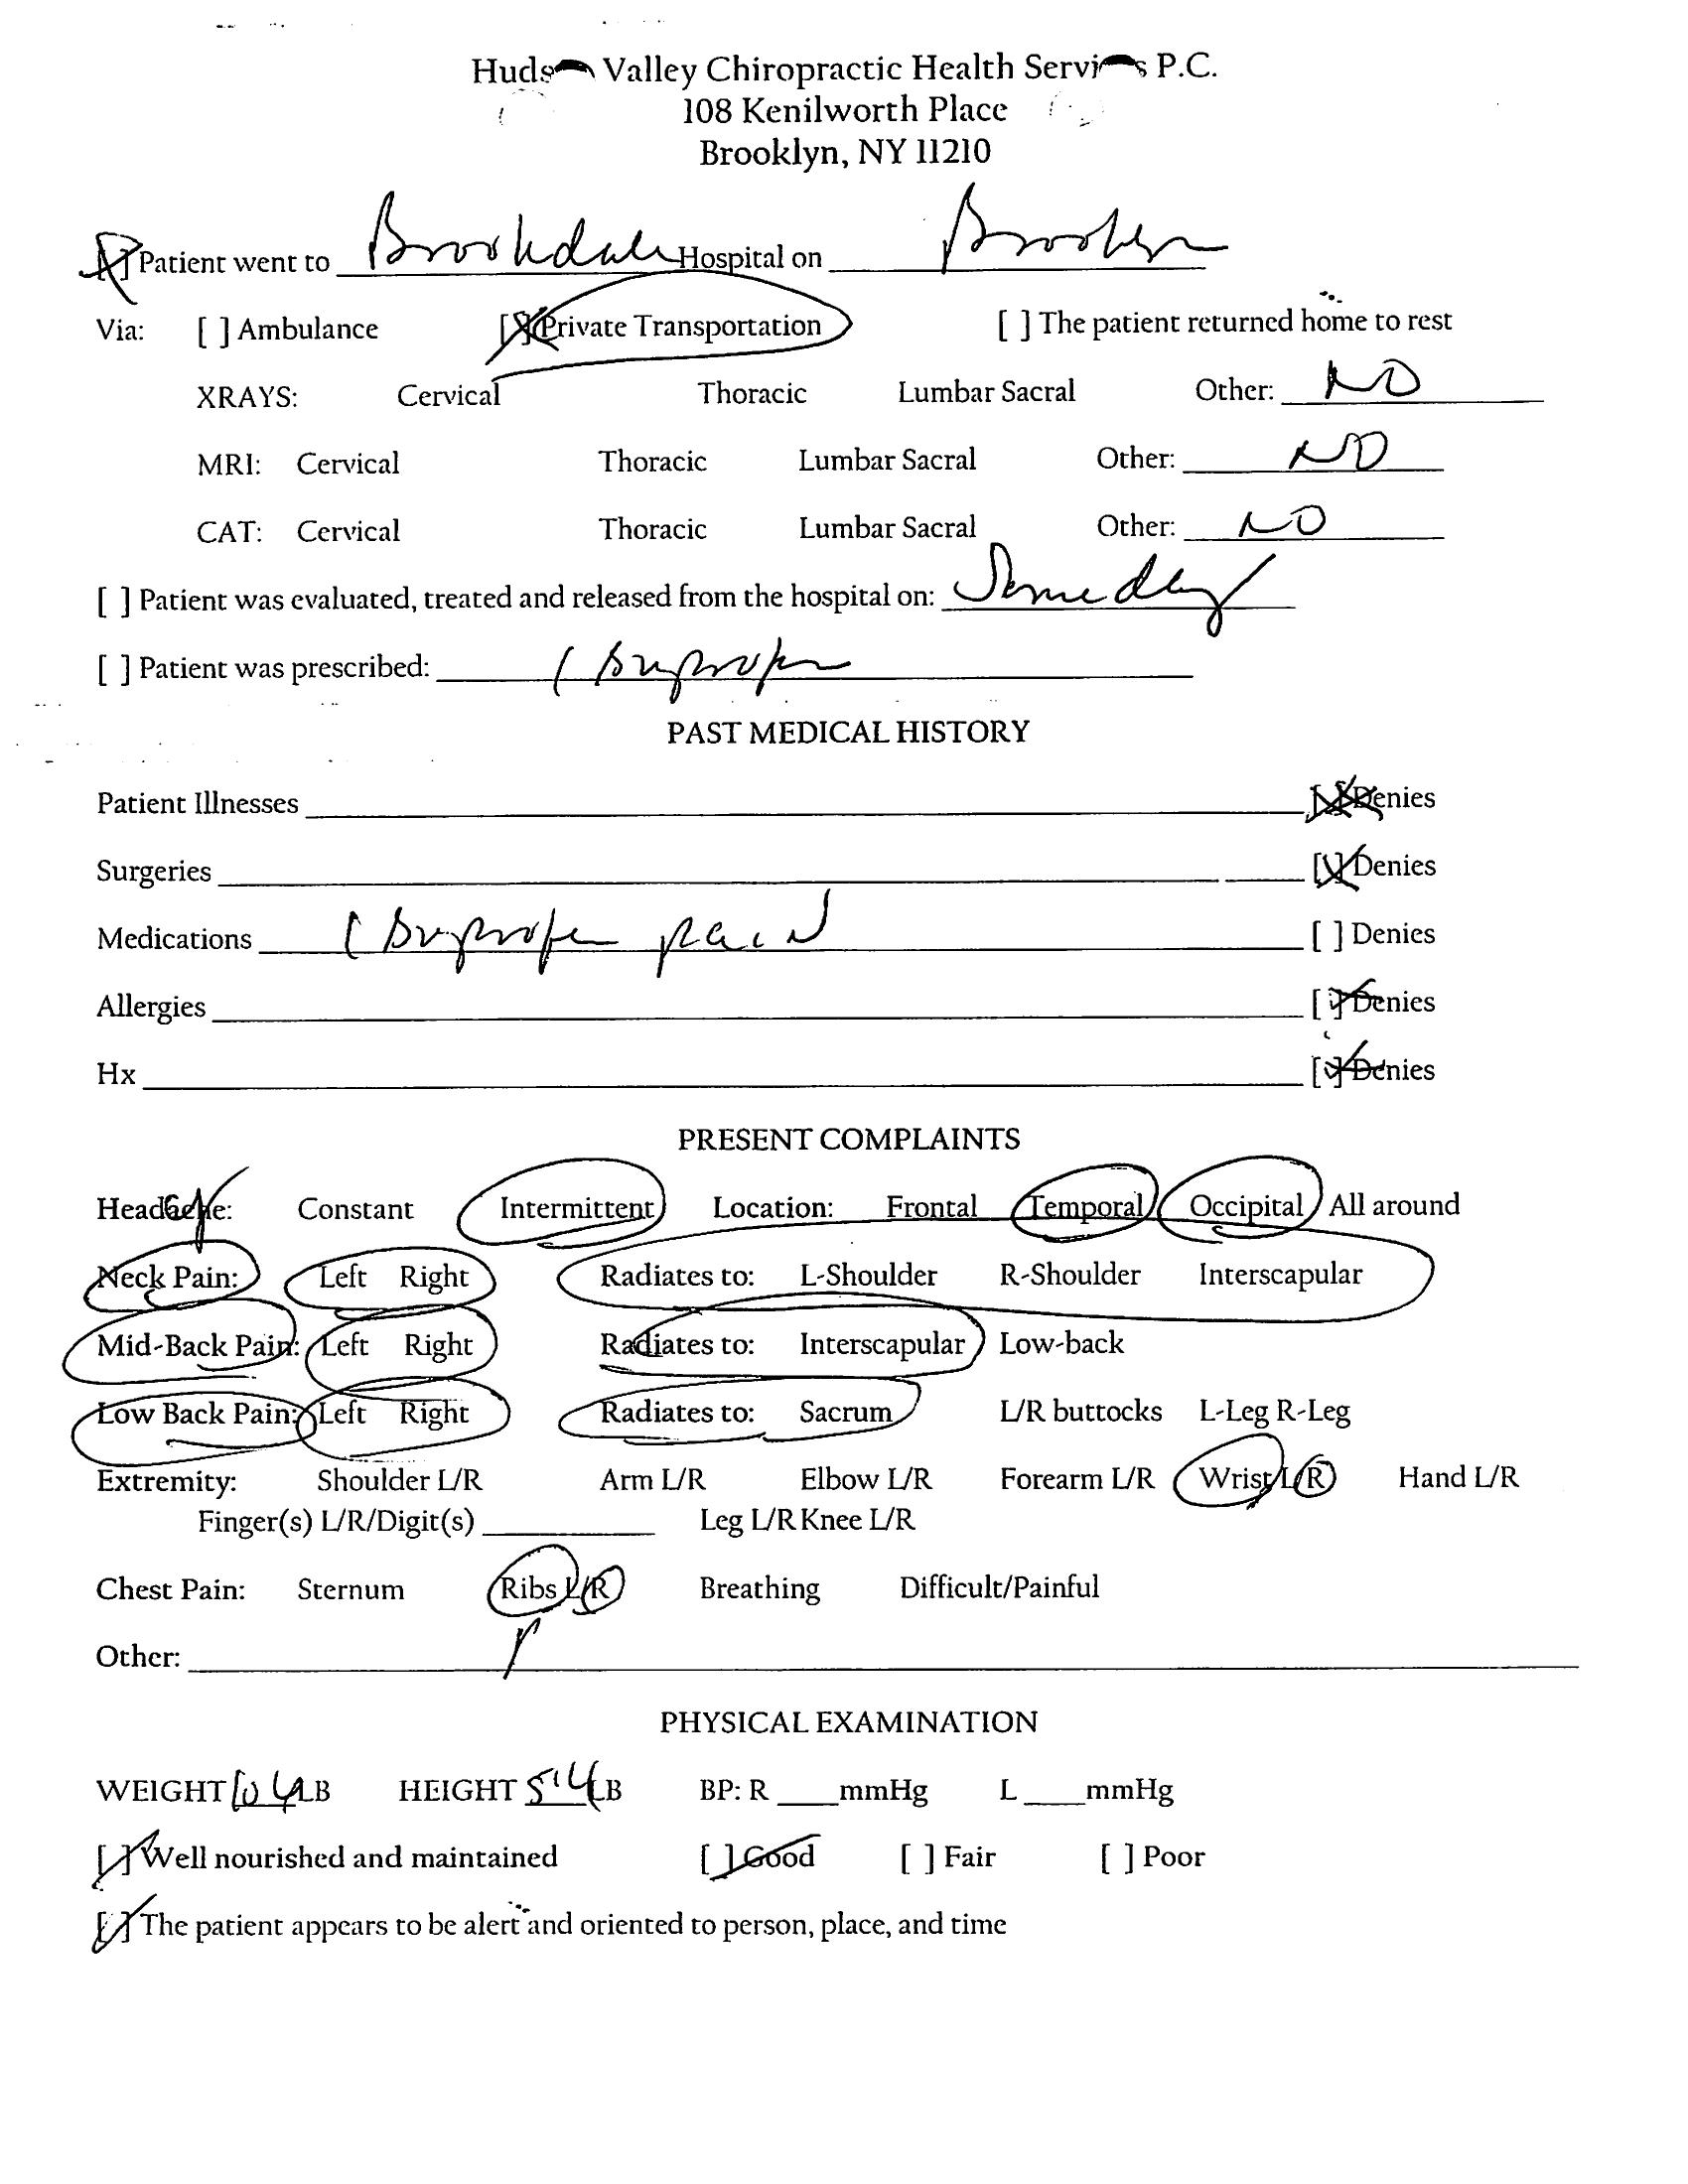 Hudson Valley Chiropractic Health Services P.C.
108 Kenilworth Place
Brooklyn, NY 11210
[X] Patient went to Brookdale Hospital on Brooklyn
Via: [ ] Ambulance [X] Private Transportation [ ] The patient returned home to rest
XRAYS: Cervical Thoracic Lumbar Sacral Other: NO
MRI: Cervical Thoracic Lumbar Sacral Other: NO
CAT: Cervical Thoracic Lumbar Sacral Other: NO
[ ] Patient was evaluated, treated and released from the hospital on: Same day
[ ] Patient was prescribed: Ibuprofen
PAST MEDICAL HISTORY
Patient Illnesses [X] Denies
Surgeries [X] Denies
Medications Ibuprofen pain [ ] Denies
Allergies [X] Denies
Hx [X] Denies
PRESENT COMPLAINTS
Headache: Constant Intermittent Location: Frontal Temporal Occipital All around
Neck Pain: Left Right Radiates to: L-Shoulder R-Shoulder Interscapular
Mid-Back Pain: Left Right Radiates to: Interscapular Low-back
Low Back Pain: Left Right Radiates to: Sacrum L/R buttocks L-Leg R-Leg
Extremity: Shoulder L/R Arm L/R Elbow L/R Forearm L/R Wrist L/R Hand L/R
Finger(s) L/R/Digit(s) Leg L/R Knee L/R
Chest Pain: Sternum Ribs L/R Breathing Difficult/Painful
Other:
PHYSICAL EXAMINATION
WEIGHT 104 LB HEIGHT 5'4 LB BP: R ___mmHg L ___mmHg
[/] Well nourished and maintained [/] Good [ ] Fair [ ] Poor
[/] The patient appears to be alert and oriented to person, place, and time